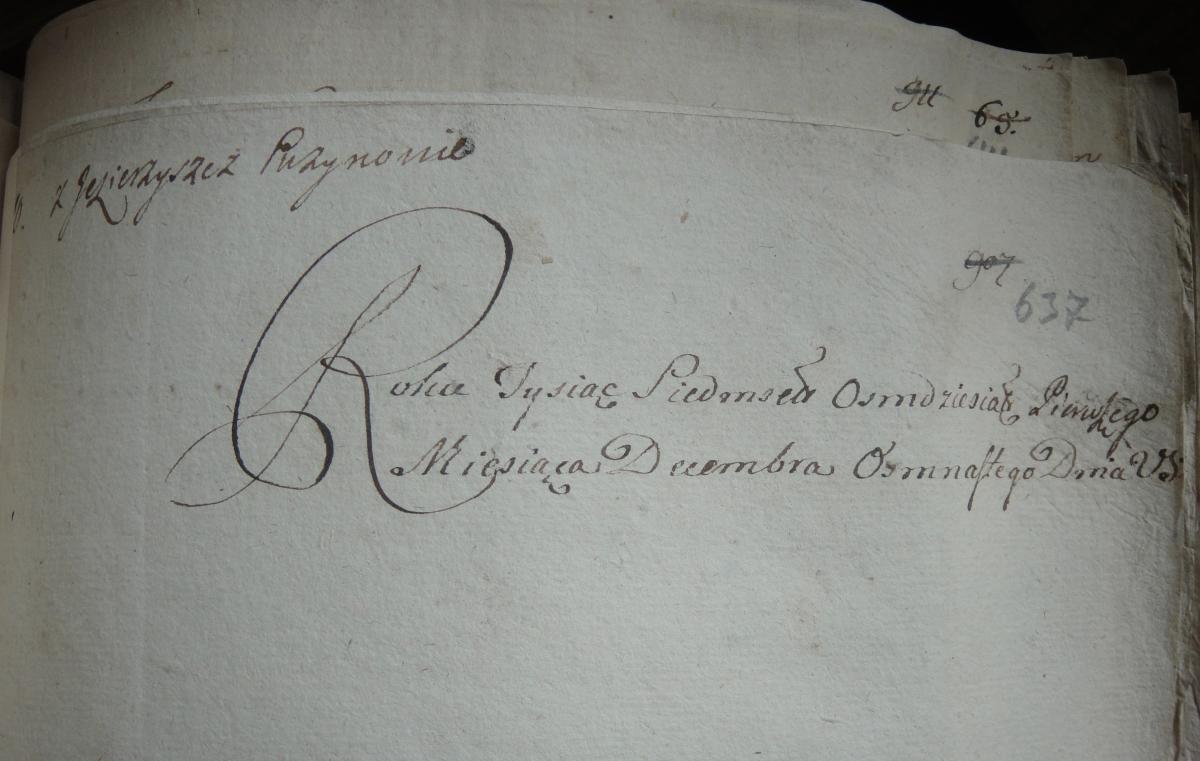 911 6 8.
z Jezierzyszcz Puzynowie
907
637
Roku Tysiąc Siedmset Osmdziesiąt Pierwszego
Miesiąca Decembra Osmnastego Dnia VS